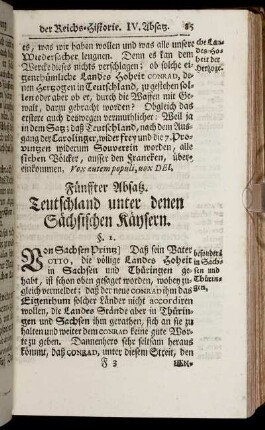 der Reichs-Historie. IV. Absatz. 85
es, was wir haben wollen und was alle unsere
Widersacher leugnen. Denn es kan dem
Wercke dieses nichts verschlagen; ob solche ei-
genthümliche Landes Hoheit CONRAD, de-
nen Hertzogen in Teutschland, zugestehen sol-
len oder aber ob er, durch die Waffen mit Ge-
walt, darzu gebracht worden? Obgleich das
erstere auch deswegen vermuthlicher: Weil ja
in dem Satz; daß Teutschland, nach dem Aus-
gang der Carolinger, wider frey und die 7. Pro-
vintzen widerum Souverein worden, alle
sieben Völcker, ausser den Francken, über-
einkommen. Vox autem populi, vox DEI.
che Lan-
des-Ho-
heit der
Hertzoge.
Fünffter Absatz.
Teutschland unter denen
Sächsischen Käysern.
§. 1.
Von Sachsen Printz) Daß sein Vater
OTTO, die völlige Landes Hoheit
in Sachsen und Thüringen ge-
habt, ist schon oben gesaget worden, wobey zu-
gleich vermeldet; daß der neue CONRAD ihm das
Eigenthum solcher Länder nicht accordiren
wollen, die Landes Stände aber in Thürin-
gen und Sachsen ihm gerathen, sich an sie zu
halten und weiter dem CONRAD keine gute Wor-
te zu geben. Dannenhero sehr seltsam heraus
kömmt, daß CONRAD, unter diesem Streit, den
besonders
in Sach-
sen und
Thürin-
gen,
F 3